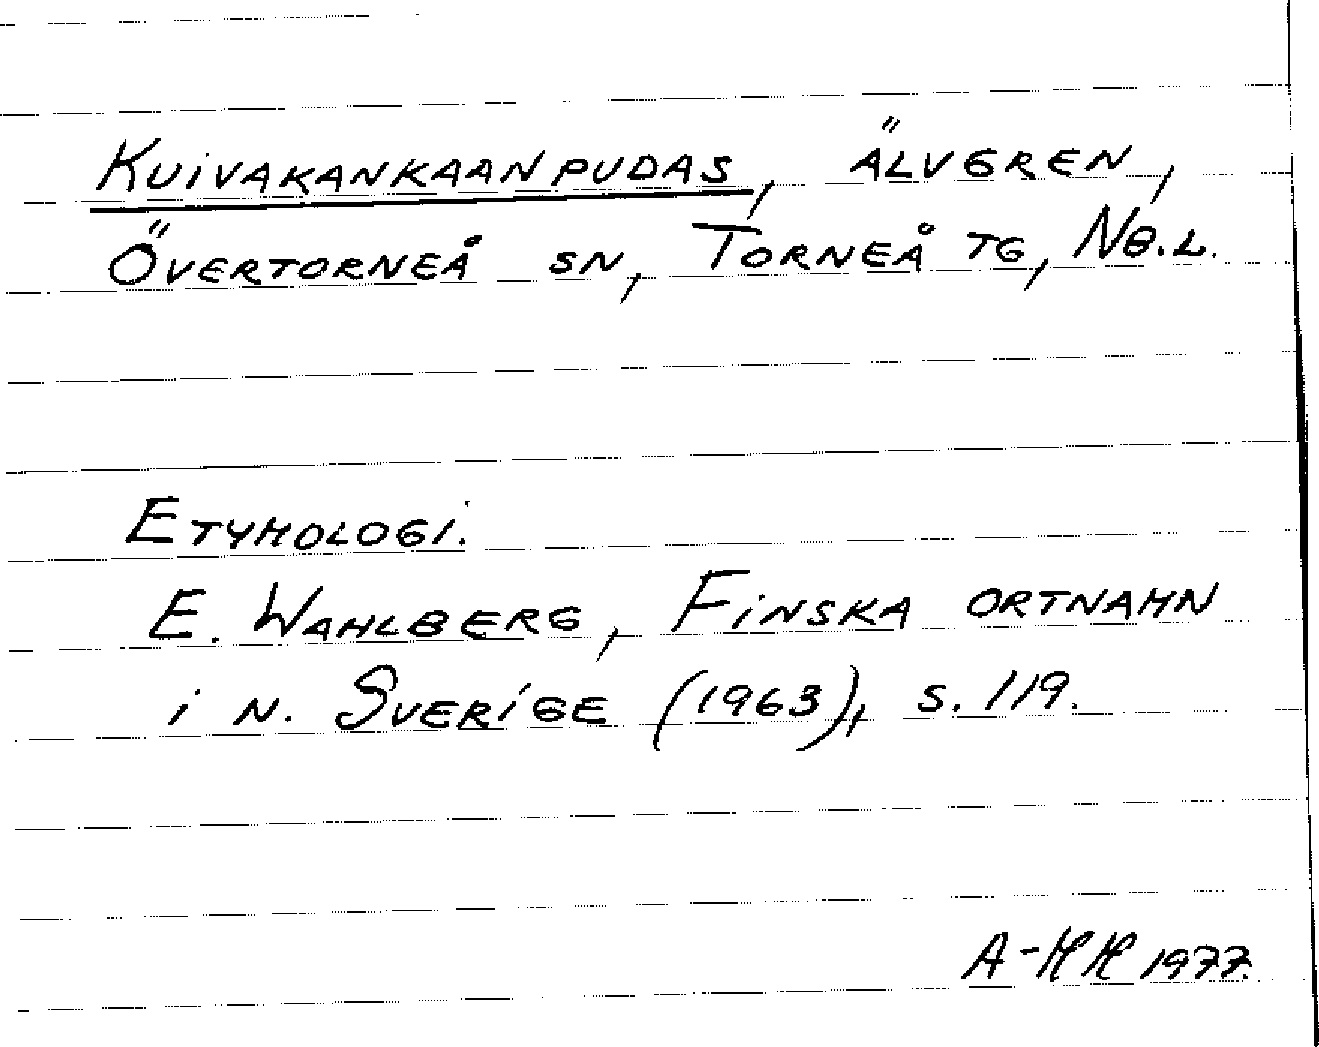 Kuivakankaanpudas, Älvgren,
Övertorneå sn, Torneå tg, Nb.l.
Etymologi.
E. Wahlberg, Finska ortnamn
i n. Sverige (1963), s. 119.
1977.